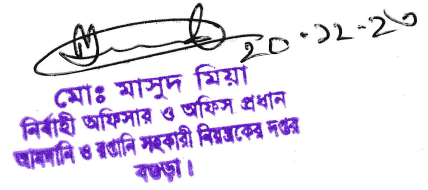 ২০-১২-২৩
মোঃ মাসুদ মিয়া
নির্বাহী অফিসার ও অফিস প্রধান
আমদানি ও রপ্তানি সহকারী নিয়ন্ত্রকের দপ্তর
বগুড়া।